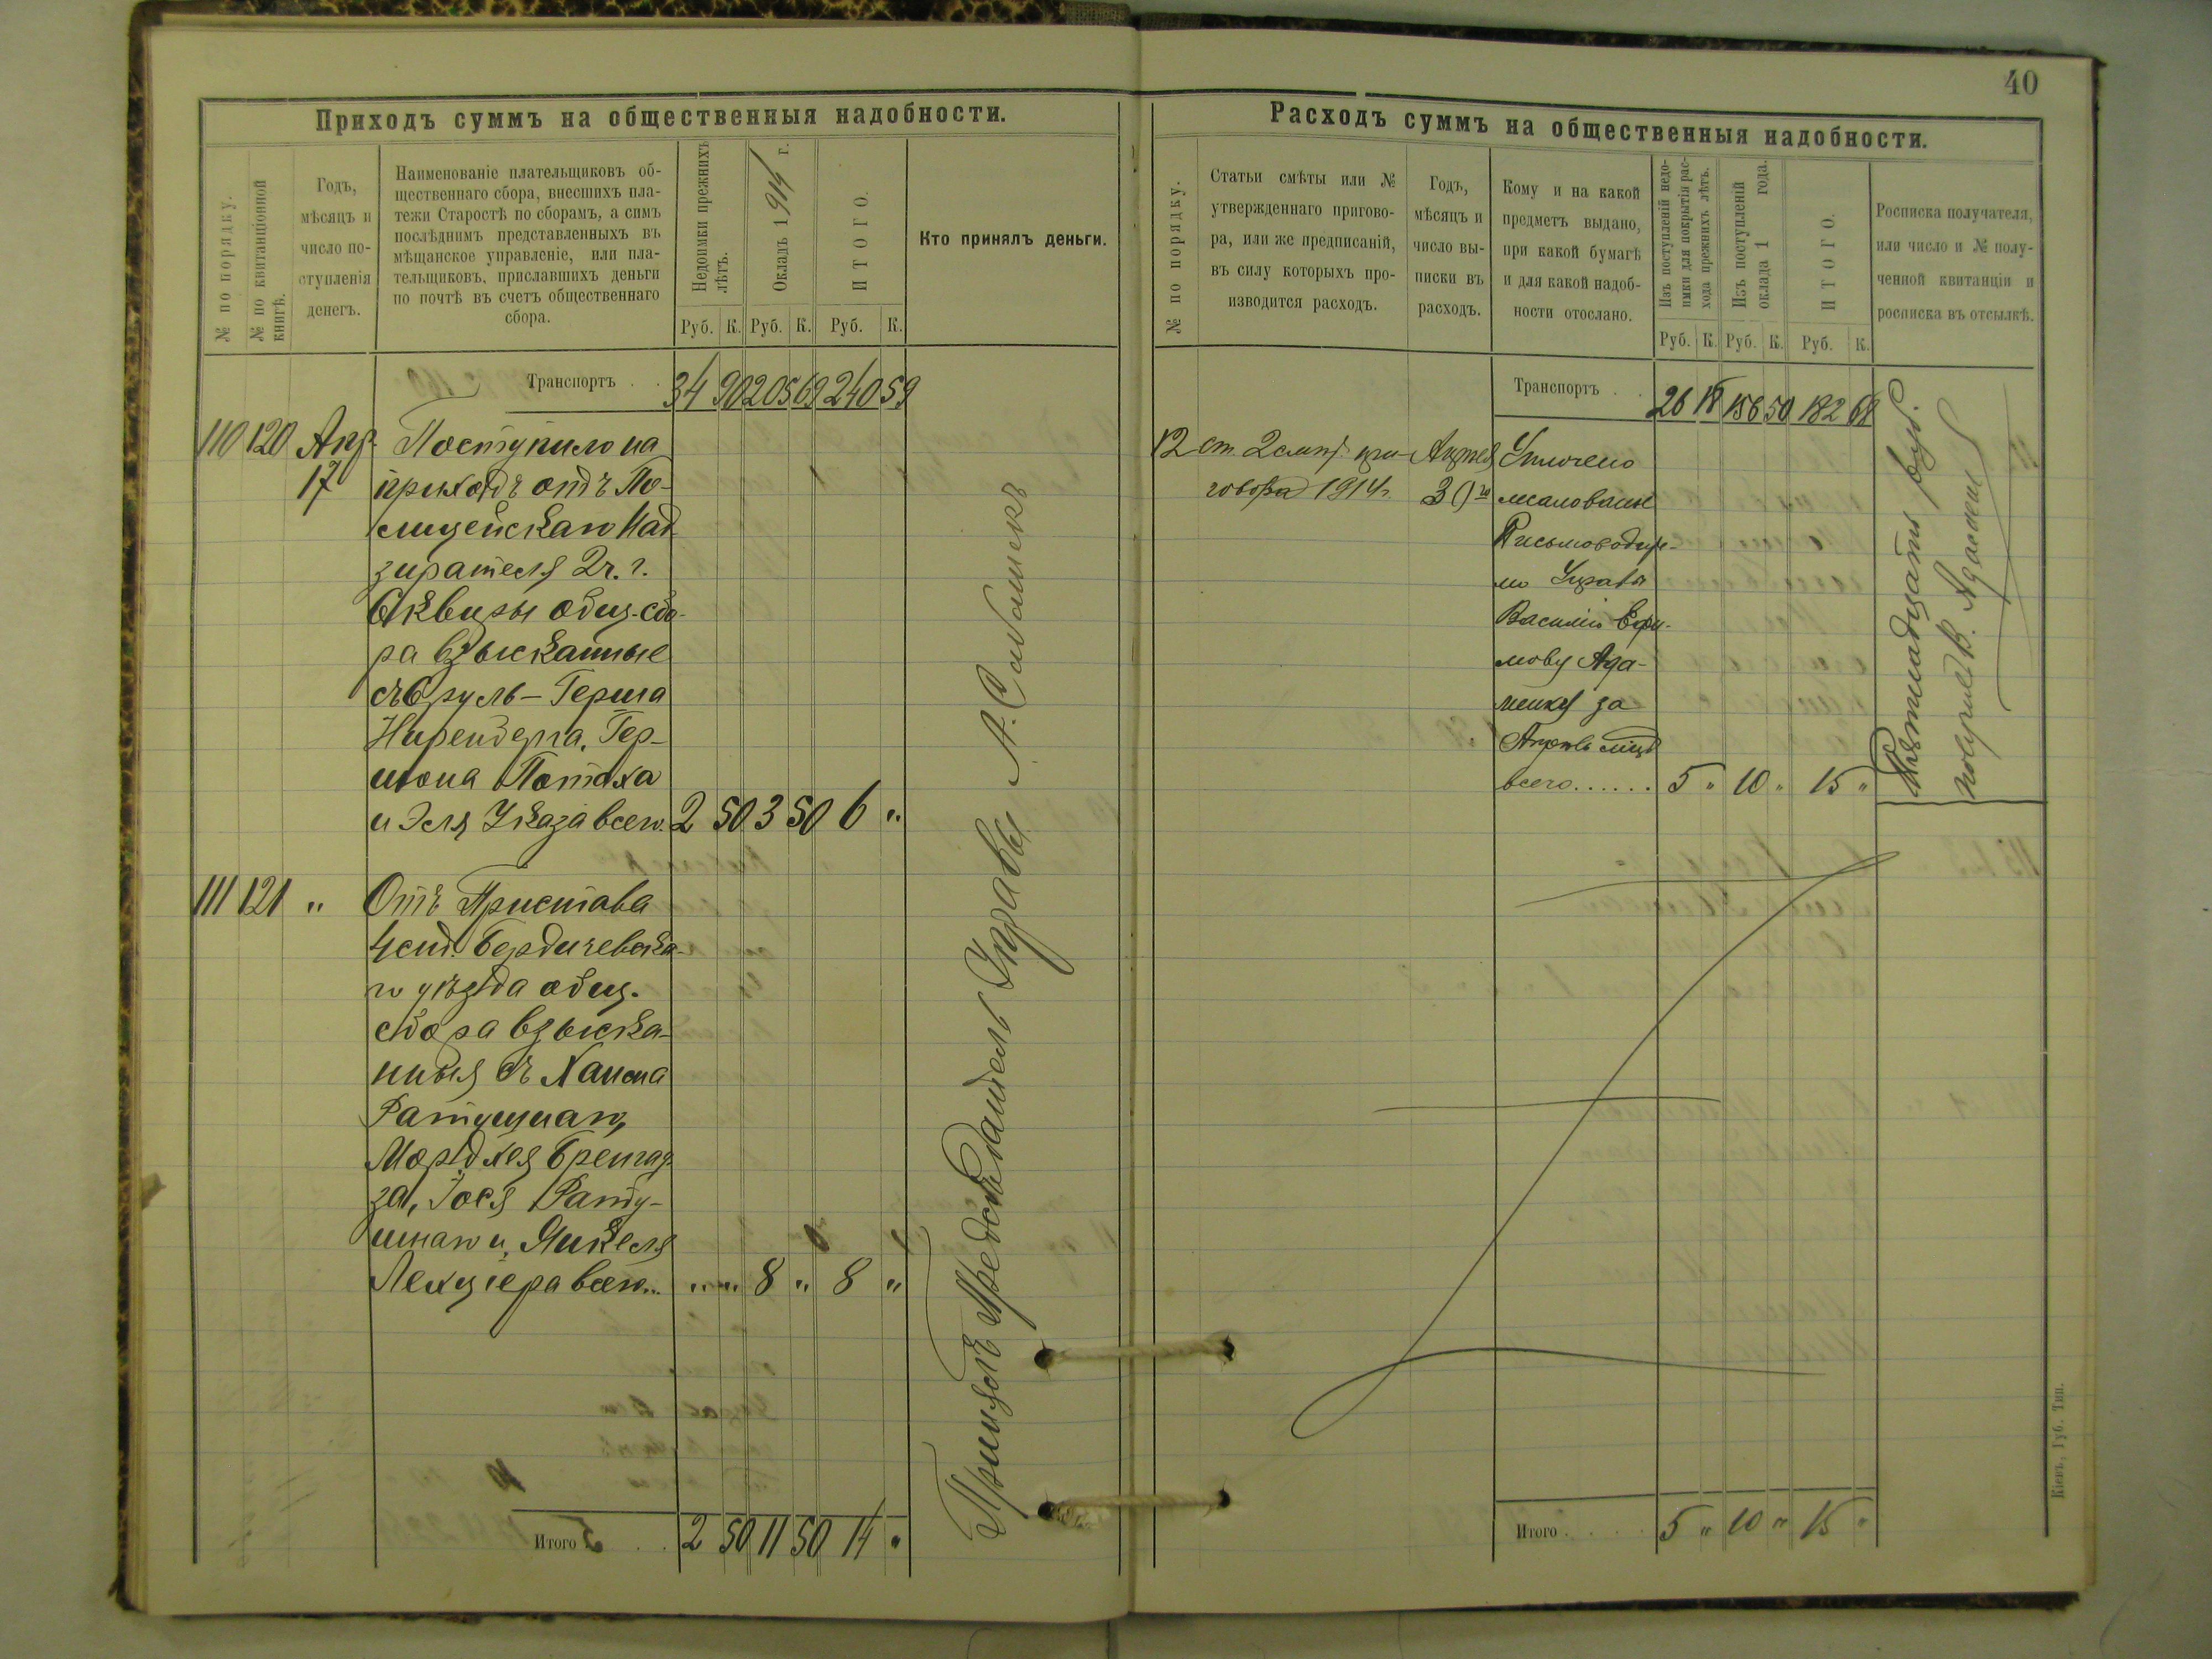 40
Приходъ суммъ на общественныя надобности.
№ по порядку.
№ по квитанціонной
книгѣ.
Годъ,
мѣсяцъ и
число по-
ступленія
денегъ.
Наименованіе плательщиковъ об-
щественнаго сбора, внесшихъ пла-
тежи Старостѣ по сборамъ, а симъ
послѣднимъ представленныхъ въ
мѣщанское управленіе, или пла-
тельщиковъ, приславшихъ деньги
по почтѣ въ счетъ общественнаго
сбора.
Недоимки прежнихъ
лѣтъ.
Окладъ 1914 г.
ИТОГО.
Руб. К. Руб. К. Руб. К.
Кто принялъ деньги.
Транспортъ . . 34 90 205 69 240 59
110 120 Апр. Поступило на
17 приходъ отъ По-
лицейскаго Над
зирателя 2 ч. г.
Сквиры общ. сбо-
ра взысканные
съ Сруль-Герша
Ниренберга, Гер-
шона Потаха
и Эля Указа всего 2 50 3 50 6 "
111 121 " Отъ Пристава
4 ст. Бердичевска-
го уѣзда общ.
сбора взыска-
нныя съ
Ратушнаго,
Мордхея
за, Іося Рату-
шнаго и Янкеля
всего... " " 8 " 8 "
Итого . . 2 50 11 50 14 "
Предсѣдатель Управы А.
Расходъ суммъ на общественныя надобности.
№ по порядку.
Статьи смѣты или №
утвержденнаго пригово-
ра, или же предписаній,
въ силу которыхъ про-
изводится расходъ.
Годъ,
мѣсяцъ и
число вы-
писки въ
расходъ.
Кому и на какой
предметъ выдано,
при какой бумагѣ
и для какой надоб-
ности отослано.
Изъ поступленій недо-
имки для покрытія рас-
хода прежнихъ лѣтъ.
Изъ поступленій
оклада 1 года.
ИТОГО.
Руб. К. Руб. К. Руб. К.
Росписка получателя,
или число и № полу-
ченной квитанціи и
росписка въ отсылкѣ.
Транспортъ . . 26 18 156 50 182 68
12 ст. 2 смѣт. при- Апрѣля Уплочено
говора 1914 г. 30го жалованье
Письмоводите-
лю Управы
Василію Ефи-
мову Ада-
менку за
Апрѣль мцъ
всего...... 5 " 10 " 15 "
Пятнадцать руб.
получилъ В. Адаменко
Итого . . . . 5 " 10 " 15 "
Кіевъ, Губ. Тип.